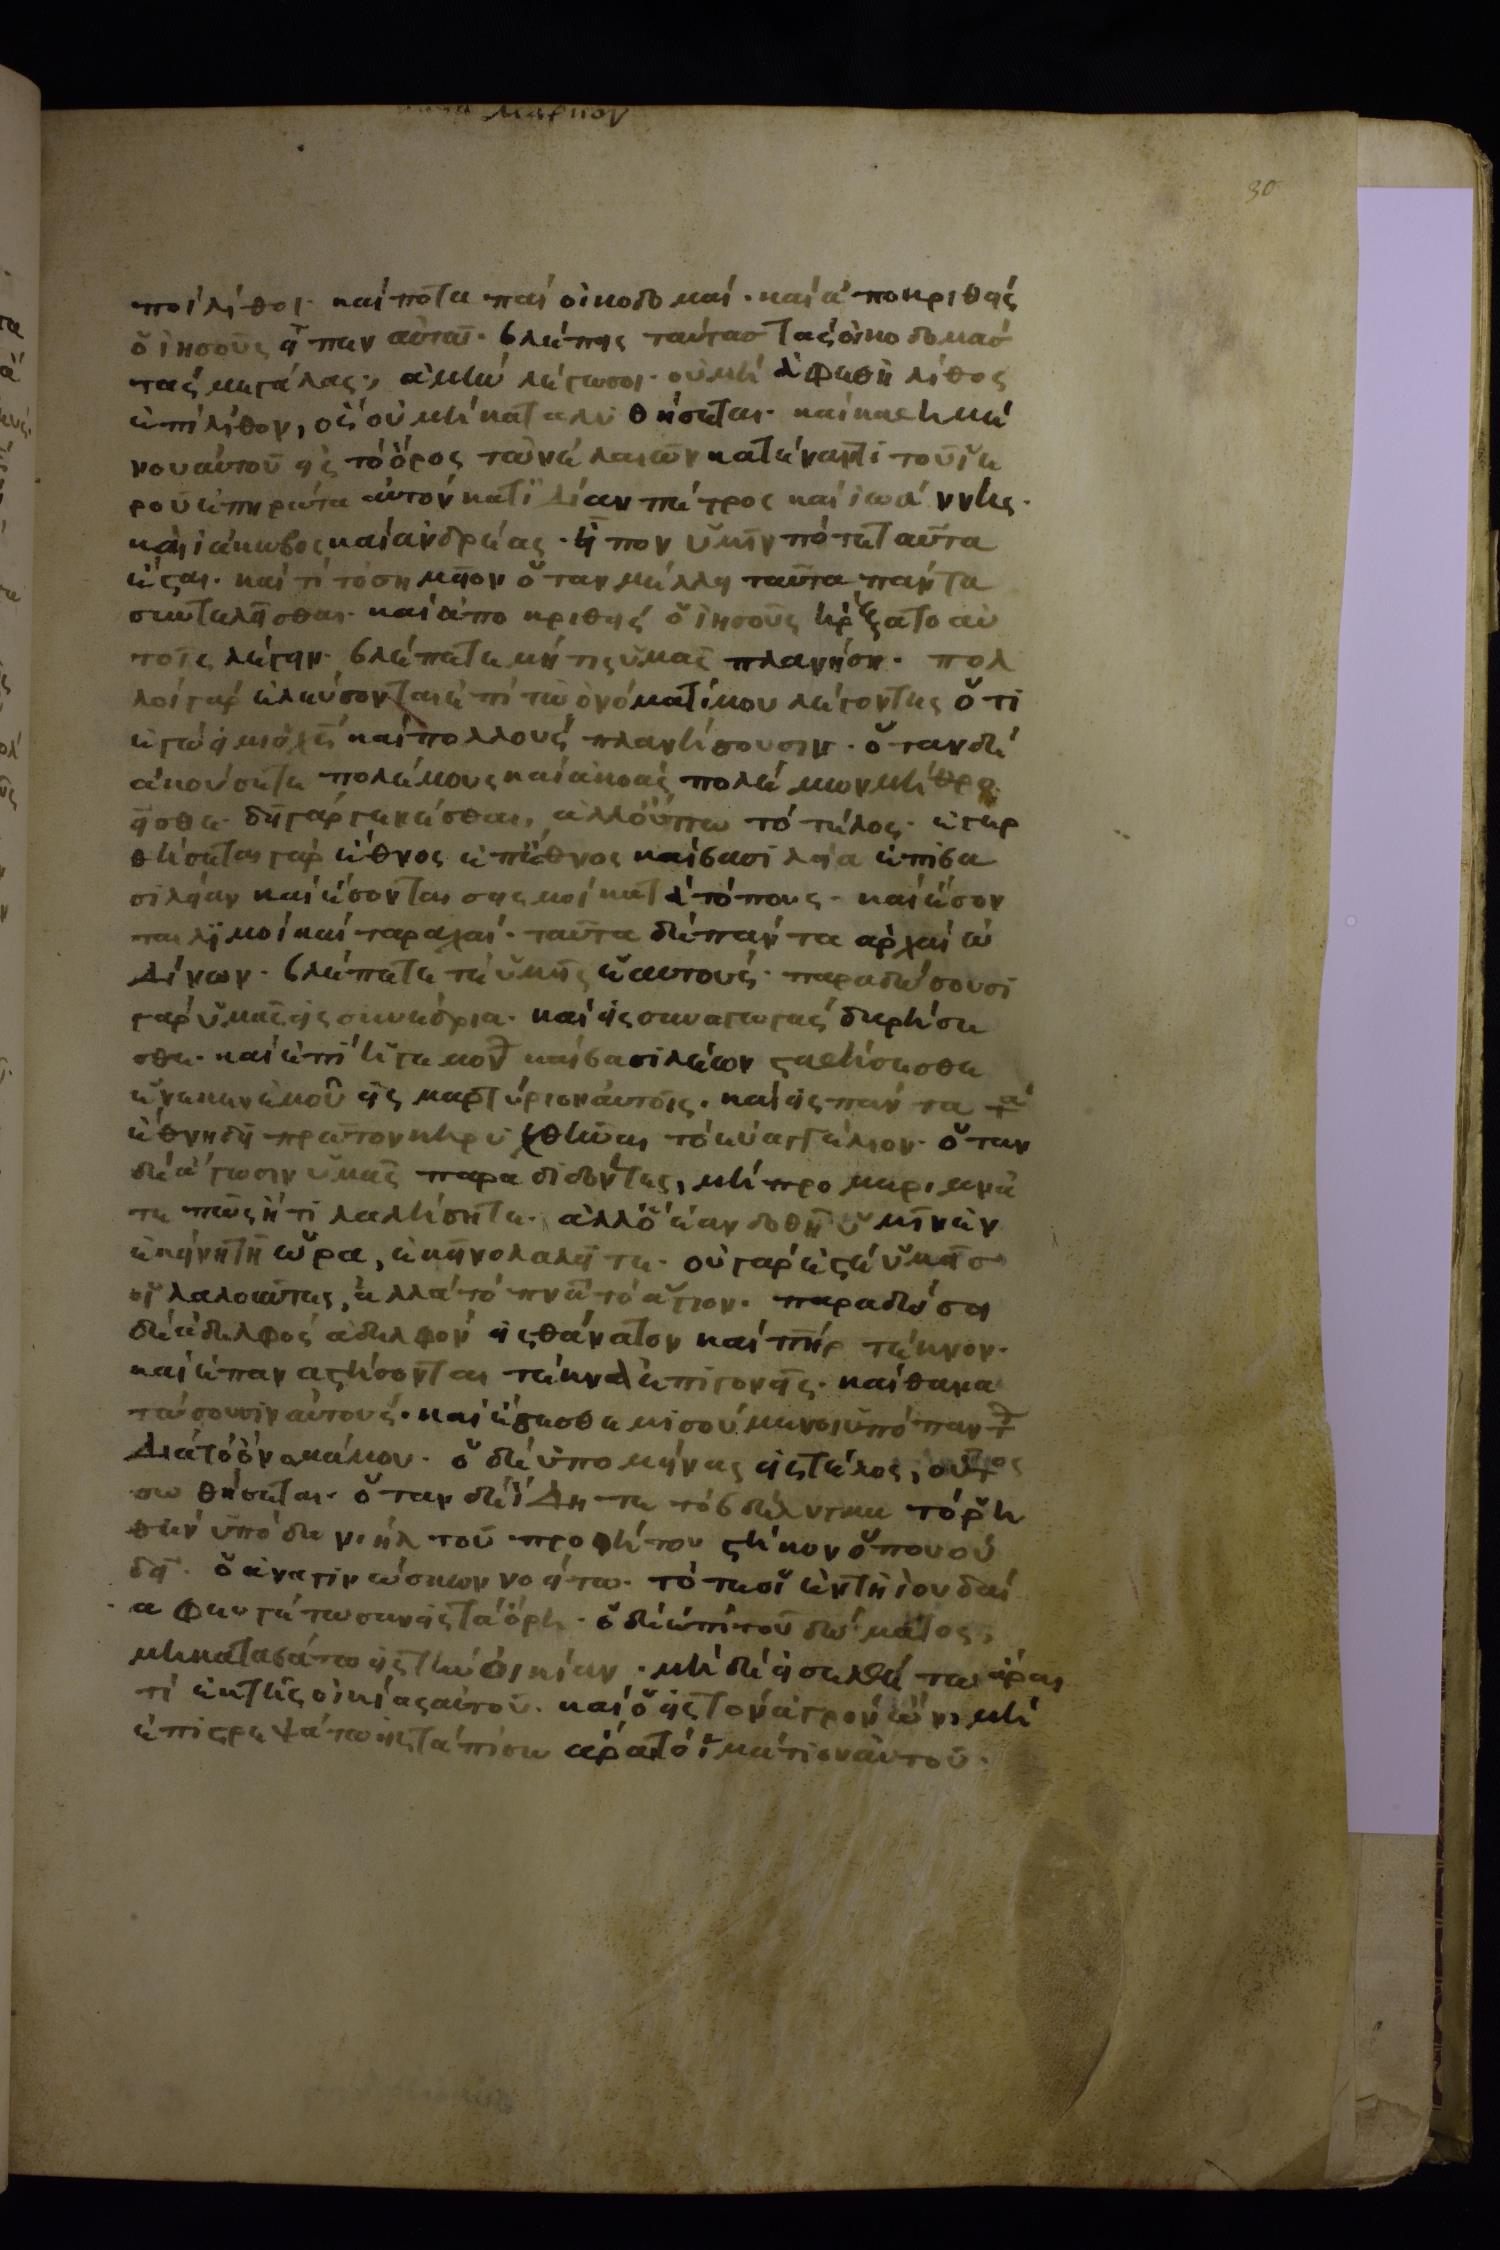 μαρκον
30
ποὶ λίθοι· καὶ ποταπαὶ οἰκοδομαί· καὶ ἀποκριθεὶς
ὁ ἰησοῦς εἶπεν αὐτῶ· βλέπεις ταύτας τὰς οἰκοδομὰς
τὰς μεγάλας·, ἀμὴν λέγω σοι· οὐ μὴ ἀφεθῆ λίθος
ἐπὶ λίθον, ὃς οὐ μὴ καταλυθήσεται· καὶ καθημέ
νου αὐτοῦ εἰς τὸ ὄρος τῶν ἐλαιῶν κατέναντι τοῦ ἱε
ροῦ ἐπηρώτα αὐτὸν κατ ἰδίαν πέτρος καὶ ἰωάννης·
καὶ ἰάκωβος καὶ ἀνδρέας· εἶπον ὑμῖν πότε ταῦτα
ἔσται· καὶ τί τὸ σημεῖον ὅταν μέλλη ταῦτα πάντα
συντελεῖσθαι· καὶ ἀποκριθεὶς ὁ ἰησοῦς ἤρξατο αὐ
τοῖς λέγειν· βλέπετε μή τις ὑμᾶς πλανήση· πολ
λοὶ γὰρ ἐλεύσονται ἐπὶ τῶ ὀνόματί μου λέγοντες ὅτι
ἐγώ εἰμι ὁ χς καὶ πολλοὺς πλανήσουσιν· ὅταν δὲ
ἀκούσητε πολέμους καὶ ἀκοὰς πολέμων μὴ θρο
εῖσθε· δεῖ γὰρ γενέσθαι, ἀλλ οὔπω τὸ τέλος· ἐγερ
θήσεται γὰρ ἔθνος ἐπ ἔθνος καὶ βασιλεία ἐπὶ βα
σιλείαν καὶ ἔσονται σεισμοὶ κατὰ τόπους· καὶ ἔσον
ται λιμοὶ καὶ ταραχαί· ταῦτα δὲ πάντα ἀρχαὶ ὠ
δίνων· βλέπετε δὲ ὑμεῖς ἑαυτούς· παραδώσουσι
γὰρ ὑμᾶς εἰς συνέδρια· καὶ εἰς συναγωγὰς δαρήσε
σθε· καὶ ἐπὶ ἡγεμόν καὶ βασιλέων σταθήσεσθε
ἕνεκεν ἐμοῦ εἰς μαρτύριον αὐτοῖς· καὶ εἰς πάντα τὰ
ἔθνη δεῖ πρῶτον κηρυχθῆναι τὸ εὐαγγέλιον· ὅταν
δὲ ἄγωσιν ὑμᾶς παραδιδόντες, μὴ προμεριμνᾶ
τε πῶς ἢ τί λαλήσητε· ἀλλ ὃ ἐὰν δοθῆ ὑμῖν ἐν
ἐκείνη τῆ ὥρα, ἐκεῖνο λαλεῖτε· οὐ γάρ ἐστε ὑμεῖς
οἱ λαλοῦντες, ἀλλὰ τὸ πνα τὸ ἅγιον· παραδώσει
δὲ ἀδελφὸς ἀδελφὸν εἰς θάνατον καὶ πηρ τέκνον·
καὶ ἐπαναστήσονται τέκνα ἐπὶ γονεῖς· καὶ θανα
τώσουσιν αὐτούς· καὶ ἔσεσθε μισούμενοι ὑπὸ πάντ
διὰ τὸ ὄνομά μου· ὁ δὲ ὑπομείνας εἰς τέλος, οὗτος
σωθήσεται· ὅταν δὲ ἴδητε τὸ βδέλυγμα τὸ ῥη
θὲν ὑπὸ δανιὴλ τοῦ προφήτου στήκον ὅπου οὐ
δεῖ· ὁ ἀναγινώσκων νοείτω· τότε οἱ ἐν τῆ ἰουδαί
α φευγέτωσαν εἰς τὰ ὄρη· ὁ δὲ ἐπὶ τοῦ δώματος,
μὴ καταβάτω εἰς τὴν οἰκίαν· μὴ δὲ εἰσελθέτω ἆραι
τί ἐκ τῆς οἰκίας αὐτοῦ· καὶ ὁ εἰς τὸν ἀγρὸν ὢν, μὴ
ἐπιστρεψάτω εἰς τὰ ὀπίσω ἆραι τὸ ἱμάτιον αὐτοῦ·